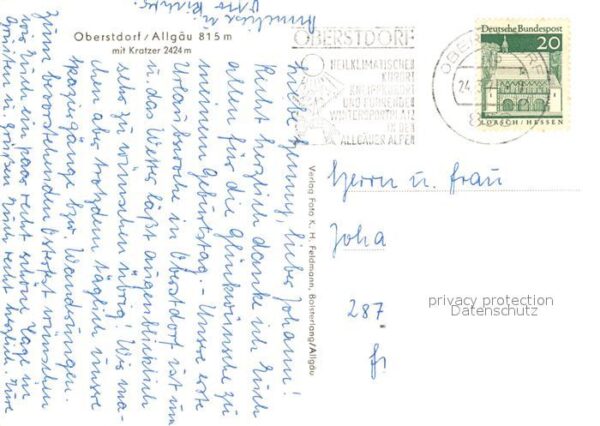 Oberstdorf/Allgäu 815 m
mit Kratzer 2424 m
Liebe Jenny, lieber Johann!
Recht herzlich danke ich Euch
allen für die Glückwünsche zu
meinem Geburtstag. - Unsere erste
Urlaubswoche in Oberstdorf ist um
u. das Wetter läßt augenblicklich
sehr zu wünschen übrig! Wir ma-
chen aber trotzdem täglich unsere
Spaziergänge bzw. Wanderungen.
Zum bevorstehenden Osterfest wünschen
wir Euch ein paar recht schöne Tage u.
grüßen Euch recht herzlich. Eure
Verlag Foto K. H. Feldmann, Bolsterlang/Allgäu
OBERSTDORF
HEILKLIMATISCHER
KURORT
KNEIPPKURORT
UND FÜHRENDER
WINTERSPORTPLATZ
IN DEN
ALLGÄUER ALPEN
OBERSTDORF
24.3.
Deutsche Bundespost
20
LORSCH/HESSEN
Herrn u. Frau
Joha
287
privacy protection
Datenschutz